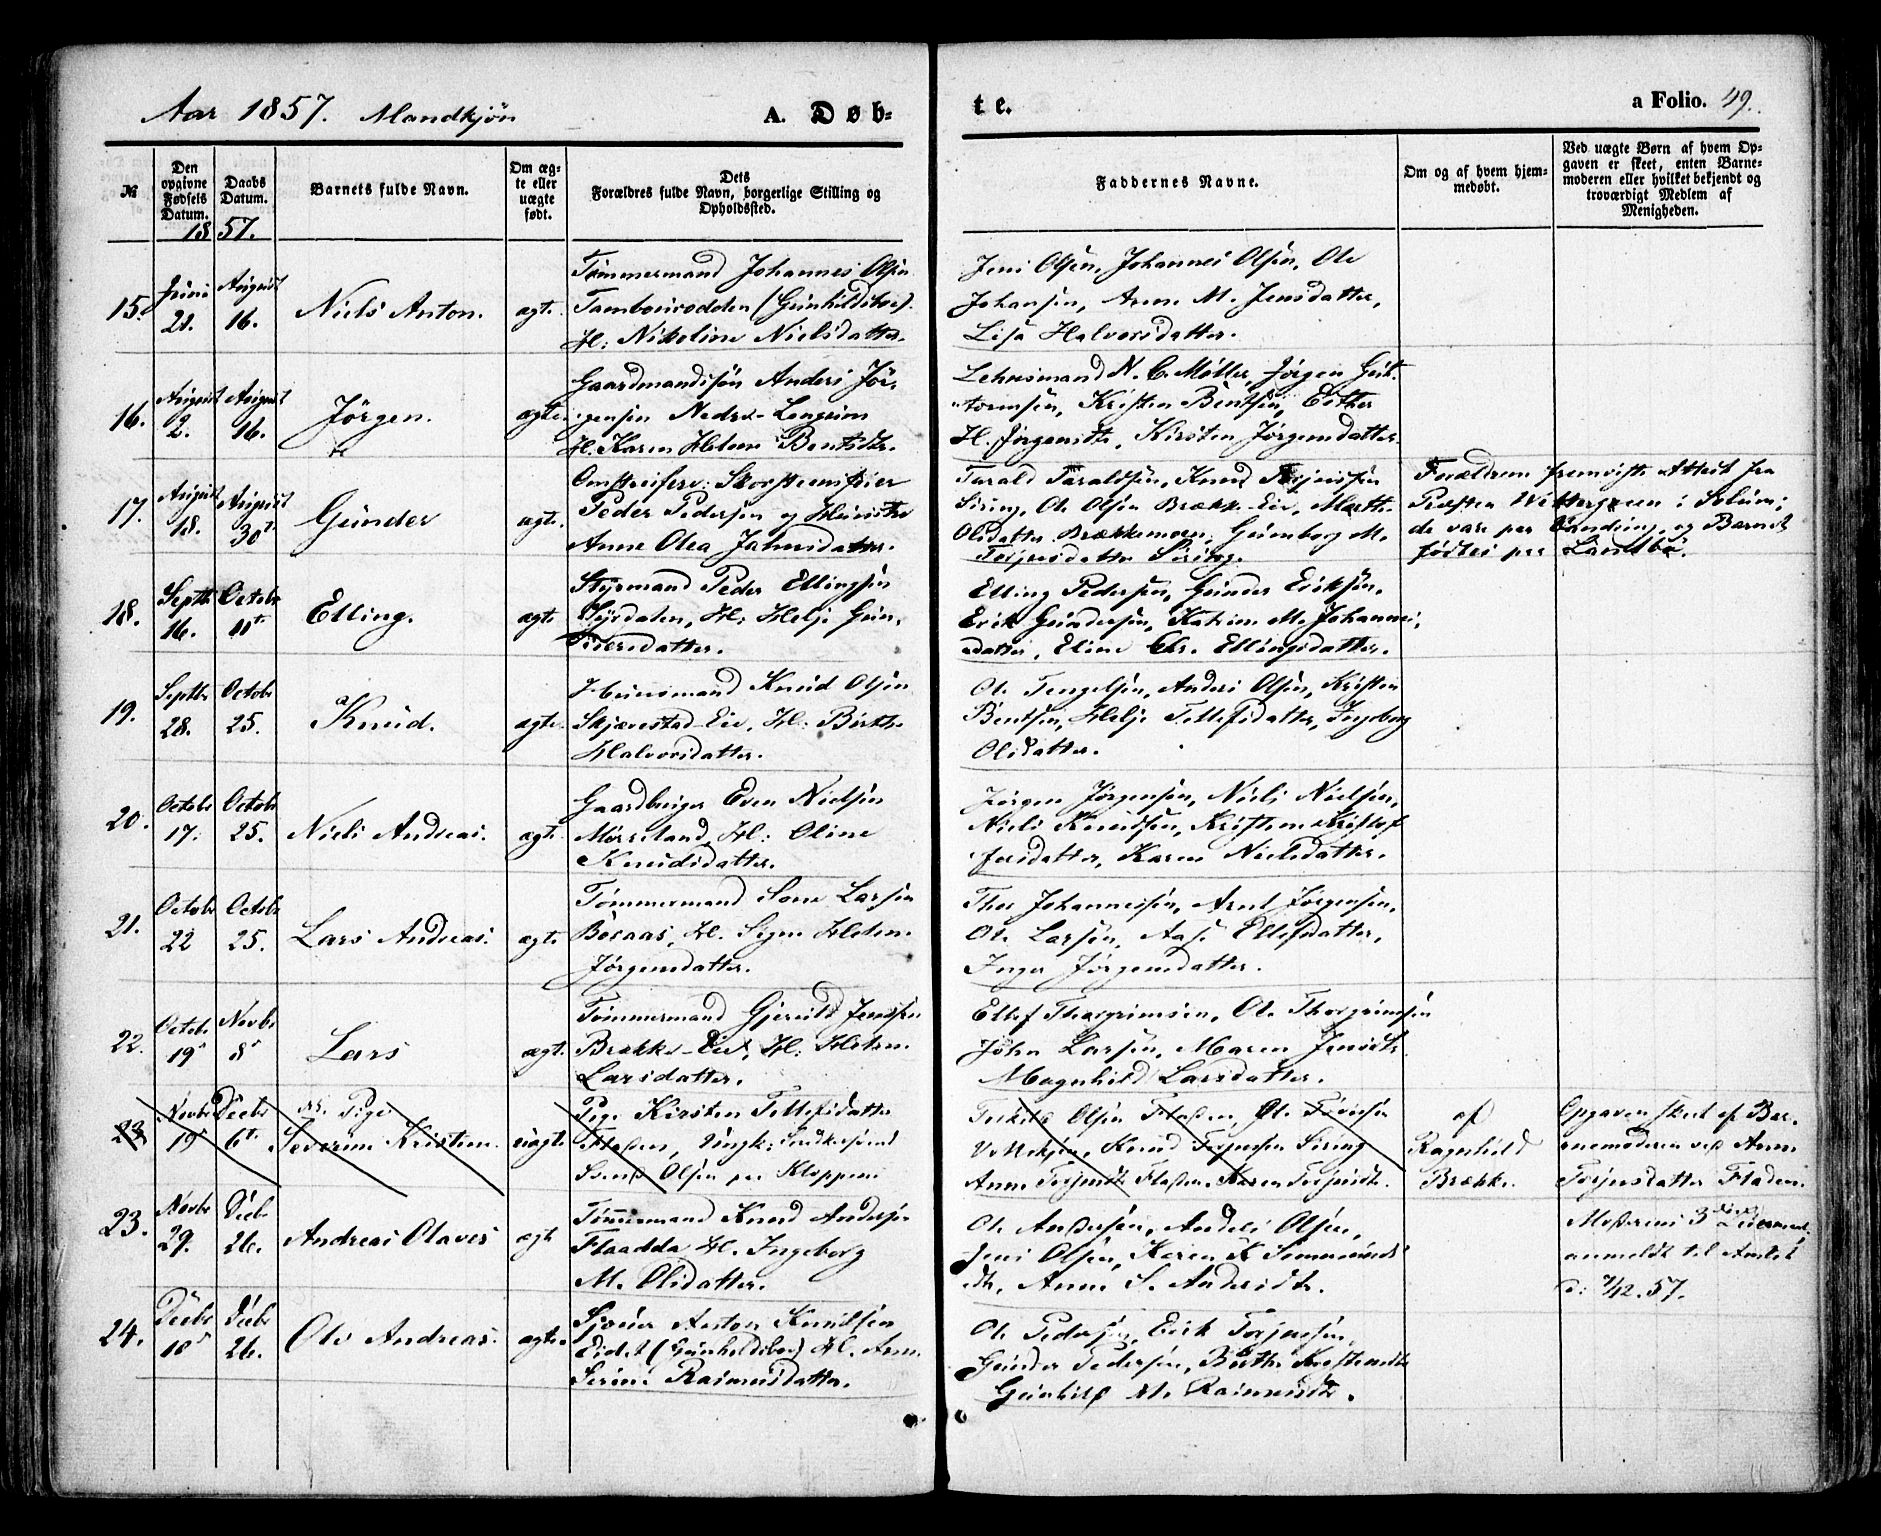 Aar 1857. Mandkjøn
A. Døb-
te.
a Folio. 49.
№
Den opgivne Fødsels Datum.
Daabs Datum.
Barnets fulde Navn.
Om ægte eller uægte født.
Dets Forældres fulde Navn, borgerlige Stilling og Opholdssted.
Faddernes Navne.
Om og af hvem hjemmedøbt.
Ved uægte Børn af hvem Opgaven er skeet, enten Barnemoderen eller hvilket bekjendt og troværdigt Medlem af Menigheden.
1857.
15. Juni 21. August 16. Niels Anton. ægte.
Tømmermand Johannes Olsen
(Gunhildsboe).
H: Nikoline Nielsdatter.
Jens Olsen, Johannes Olsen, Ole
Johansen, Anne M. Jensdatter,
Lisa Halvorsdatter.
16. August 2. August 16. Jørgen. ægte
Gaardmandssøn Anders Jør-
gensen Nedre-Longum
H. Karen Helene Bentsdtr.
Lehnsmand N. C. Møller, Jørgen Gut-
tormsen, Kristen Bentsen, Esther
H. Jørgensdtr, Kirsten Jørgensdatter.
17. August 18. August 30te Gunder ægte.
Omstreifere: Skorsteensfeier
Peder Pedersen og Hustru
Anne Olea Jahnsdatter.
Tarald Taraldsen, Knud Terjesen
Siring, Ole Olsen Brække-Eie, Marthe
Olsdatter Brækkemoen, Gunborg M.
Terjesdatter Siring.
Forældrene fremviste Attest fra
Presten Wettergreen i Solum;
de vare paa Vandring, og Barnet
fødtes paa Landbø.
18. Septbr 16. Octobr 11te Elling. ægte
Styrmand Peder Ellingsen
H: Helje Gun-
dersdatter.
Elling Pedersen, Gunder Eriksen,
Erik Gundersen, Katrine M. Johannes-
datter, Eline Chr. Ellingsdatter.
19. Septbr 28. Octobr 25. Knud. ægte.
Huusmand Knud Olsen
Skjævestad-Eie, H: Birthe
Halvorsdatter.
Ole Tengelsen, Anders Olsen, Kristen
Bentsen, Helje Tellefsdatter, Ingeborg
Olsdatter.
20. Octobr 17. Octobr 25. Niels Andreas. ægte.
Gaardbruger Even Nielsen
Møreland, H: Oline
Knudsdatter.
Jørgen Jørgensen, Niels Nielsen,
Niels Knudsen, Kristine Kristof-
fersdatter, Karen Nielsdatter.
21. Octobr 22 Octobr 25. Lars Andreas. ægte
Tømmermand Lars Larsen
Børaas, H. Signe Helene
Jørgensdatter.
Thor Johannessen, Arnt Jørgensen,
Ole Larsen, Aase Ellefsdatter,
Inger Jørgensdatter.
22. Octobr 19 Novbr 8 Lars ægt.
Tømmermand Gjeruld Jensen
Brække-Eie, H: Helene
Larsdatter.
Ellef Thorgrimsen, Ole Thorgrimsen
John Larsen, Maren Jensdtr
Magnhild Larsdatter.
23 Novbr 19 Decbr 6te NB. Pige
Severine Kristine. uægte
Pige Kirsten Tellefsdatter
Fladen, Ungk:
Svend Olsen paa Kloppene
Olsen Fladen, Ole
Knud Terjesen Siring
Anne Terjesdtr Fladen, Karen Terjesdtr.
af
Ragnhild
Brække.
Opgaven skeet af Bar-
nemoderen ved Anne
Terjesdatter Fladen.
Moderens 3die Leiermaal
anmeldt til Amtet
d: 7/12.57.
23. Novbr 29. Decbr 26. Andreas Olaves ægte
Tømmermand Knud Andersen
Flaadda H. Ingeborg
M. Olsdatter.
Ole Andersen, Anders Olsen,
Jens Olsen, Karen K Simmonds-
dtr, Anne S. Andersdtr.
24. Decbr 10 Decbr 26. Ole Andreas. ægte.
Anton Knudsen
Eidet (Gunhildsboe) H. Anne
Serine Rasmusdatter.
Ole Pedersen, Erik Terjesen,
Gunder Pedersen, Birthe Kristensdtr
Gunhild M. Rasmusdtr.